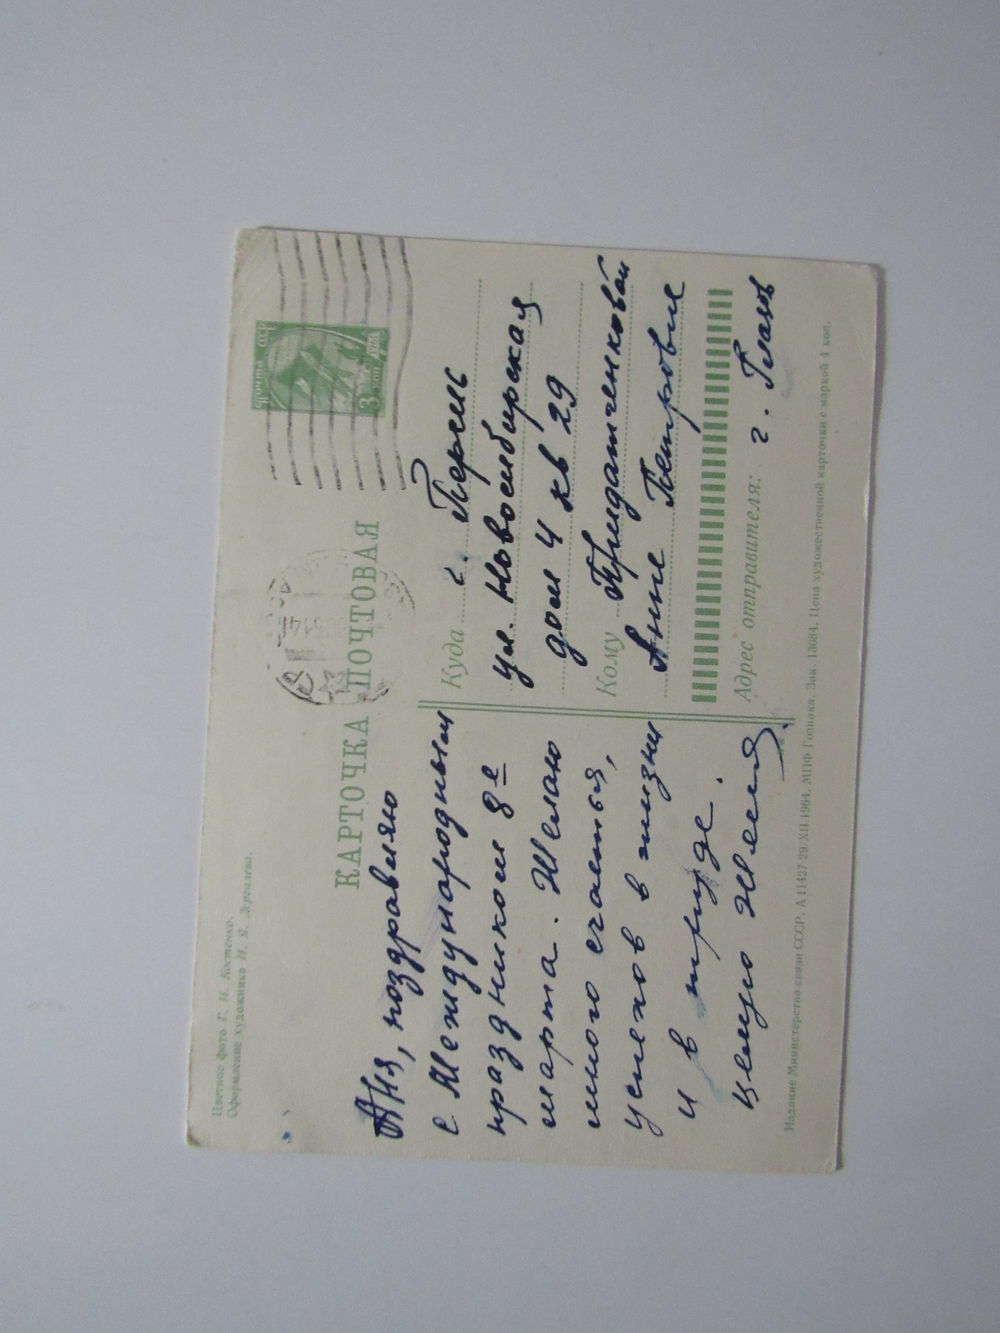 Цветное фото Г. И. Костенко.
Оформление художника Н. Я.
ПОЧТА СССР
3 КОП
1961
КАРТОЧКА ПОЧТОВАЯ
Аня, поздравляю
с Международным
праздником 8е
марта. Желаю
много счастья,
успехов в жизни
и в труде.
целую Женя.
Куда г. Пермь
ул. Новосибирская
дом 4 кв 29
Кому Придатченковой
Анне Петровне
Адрес отправителя: г. Глазов
Издание Министерства связи СССР. А 11427 29/XII 1964. МПФ Гознака. Зак. 13084. Цена художественной карточки с маркой 4 коп.